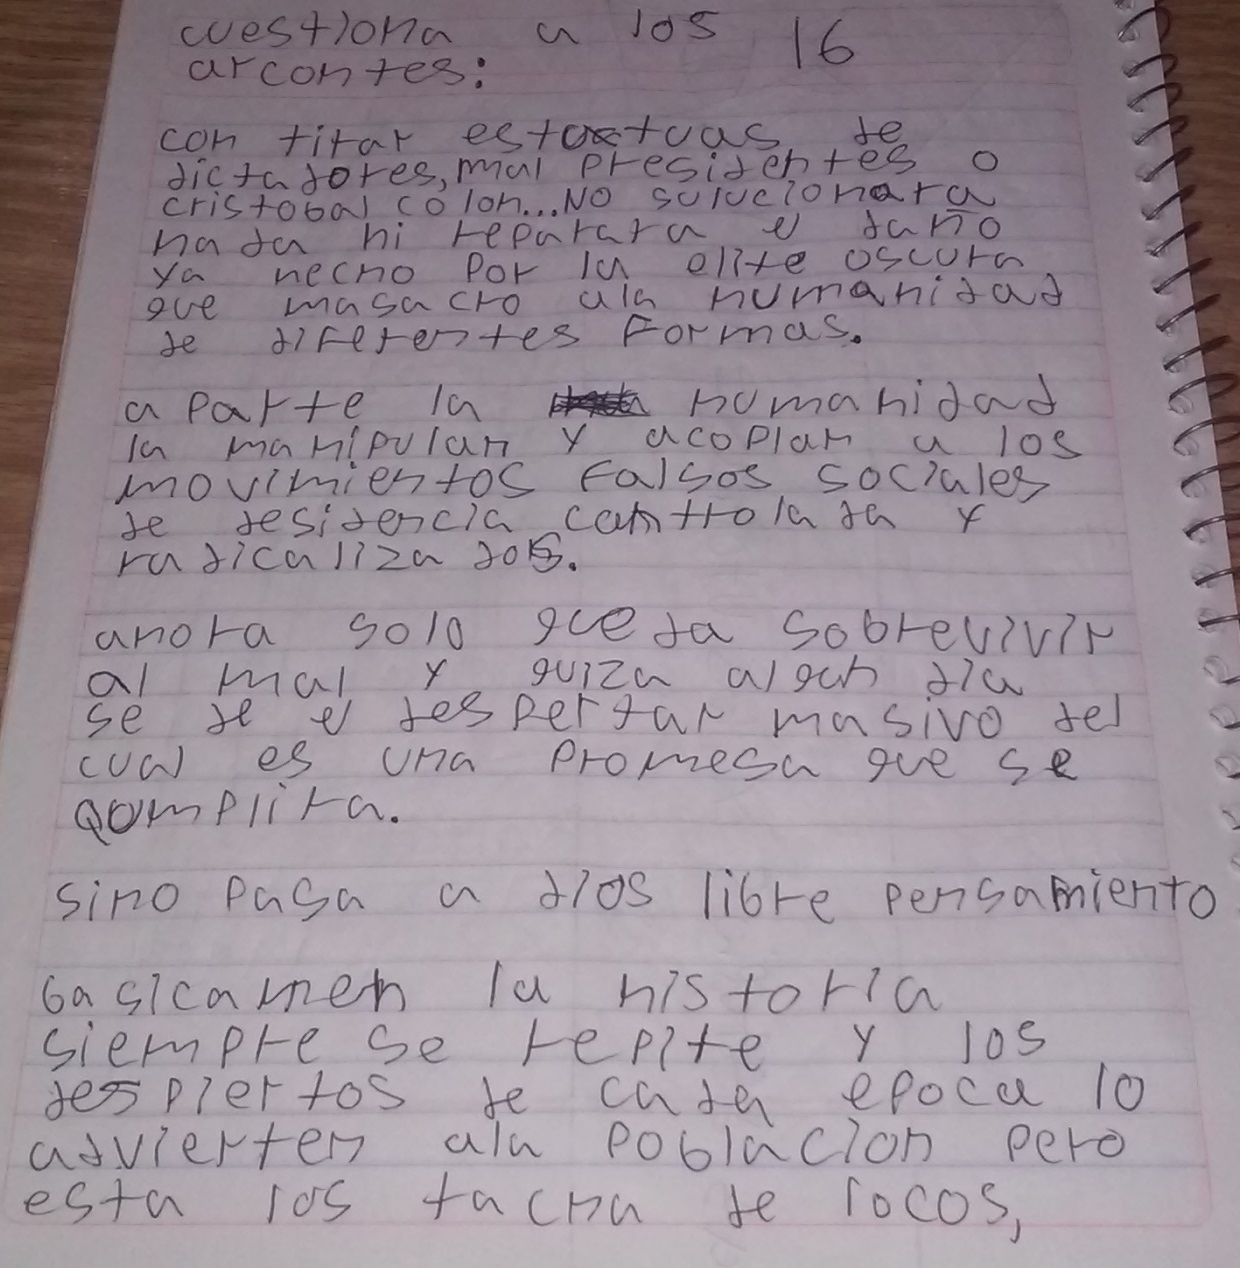 cuestiona a los 16
arcontes:
con tirar estatuas de
dictadores, mal presidentes o
cristobal colon...No solucionara
nada ni reparara el daño
ya hecho por la elite oscura
que masacro ala humanidad
de diferentes formas.
a parte la humanidad
la manipulan y acoplan a los
movimientos falsos sociales
de desidencia controlada y
radicalizados.
ahora solo queda sobrevivir
al mal y quiza algun dia
se de el despertar masivo del
cual es una promesa que se
qomplira.
sino pasa a dios libre pensamiento
basicamen la historia
siempre se repite y los
despiertos de cada epoca lo
advierten ala poblacion pero
esta los tacha de locos,